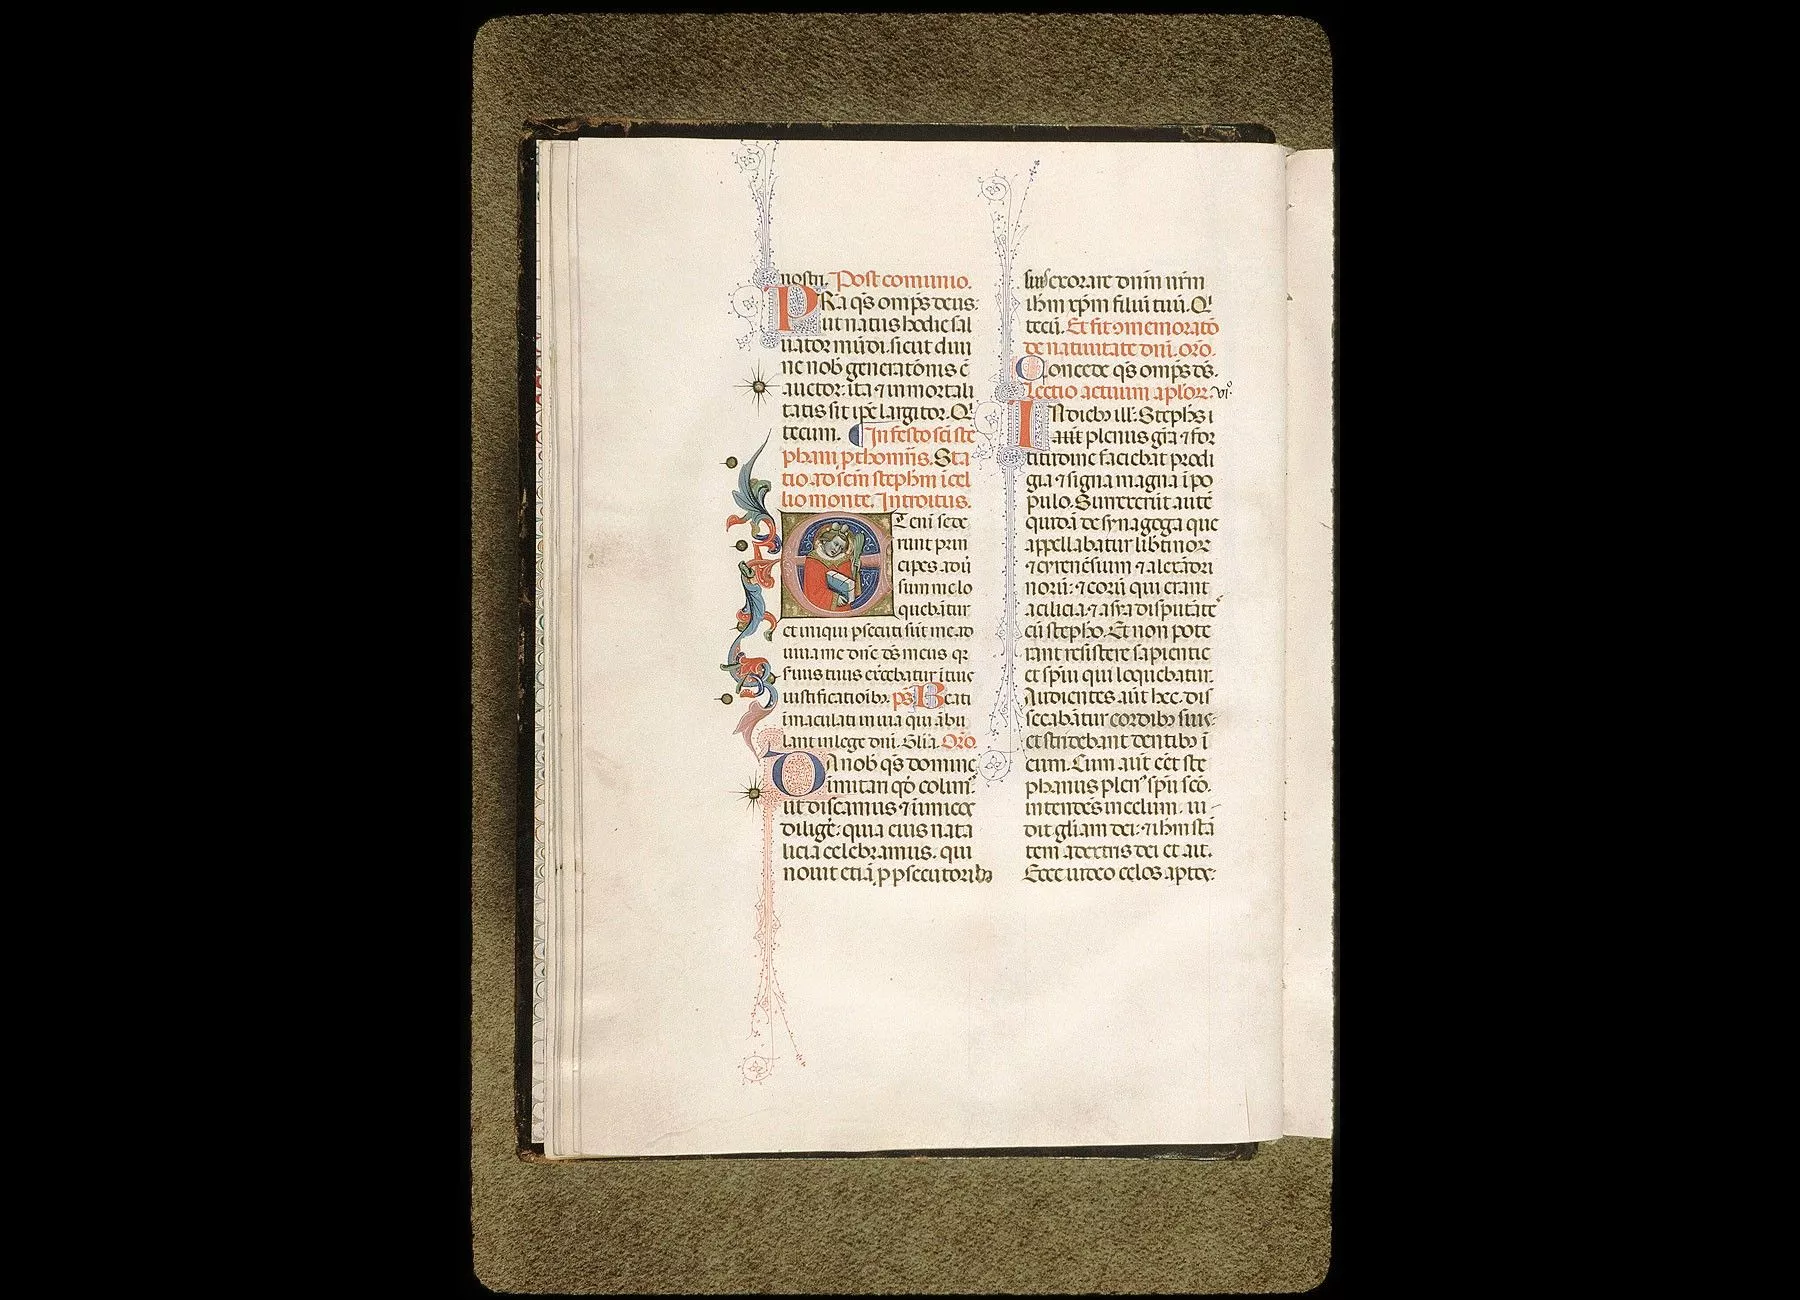 nostri. Post comunio.
PRa qs omps deus:
ut natus hodie sal
uator mundi. sicut diui
ne nob generationis ē
auctor: ita ⁊ inmortali
tatis sit ipe largitor. Q
tecum. In festo sci ste
phani pthomris. Sta
tio ad scm stephm i cel
lio monte. Introitus.
ETeni sede
runt prin
cipes adū
sum me lo
quebātur
et iniqui psecuti sūt me ad
iuua me dne ds meus qr
suus tuus exercebatur i tuis
iustificatioib. ps Beati
īmaculati in uia qui ābu
lant in lege dni. Glia. Oro.
DA nob qs domine
imitari qd colim.
ut discamus ⁊ inimicos
diligē: quia eius nata
licia celebramus. qui
nouit etiā p psecutorib
exorare dnm nrm
ihm xpm filiū tuū. Q
tecū. Et fit 9memoratō
de natiuitate dni. oro.
Concede qs omps ds.
Lectio actuum aplor. vi
IN dieb ill. Stephs
aut plenus gra ⁊ for
titudine faciebat prodi
gia ⁊ signa magna ī po
pulo. Surrexerūt autē
quidā de synagoga que
appellabatur libtinor
⁊ cyrenēsium ⁊ alexādri
norū: ⁊ eorū qui erant
a cilicia ⁊ asya disputātes
cū stepho. Et non pote
rant resistere sapientie
et spui qui loquebatur.
Audientes aūt hec. dis
secabātur cordib suis
et stridebant dentib ī
eum. Cum aūt eēt ste
phanus plen spū sco.
intendēs in celum. ui
dit gliam dei: ⁊ ihm stā
tem a dextris dei et ait.
Ecce uideo celos aptos: